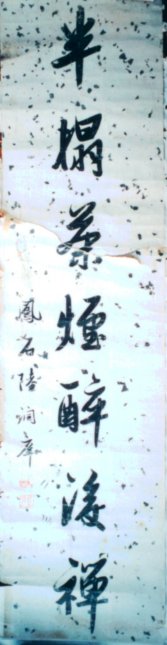 半榻茶煙醉後禪
鳳石陸潤庠